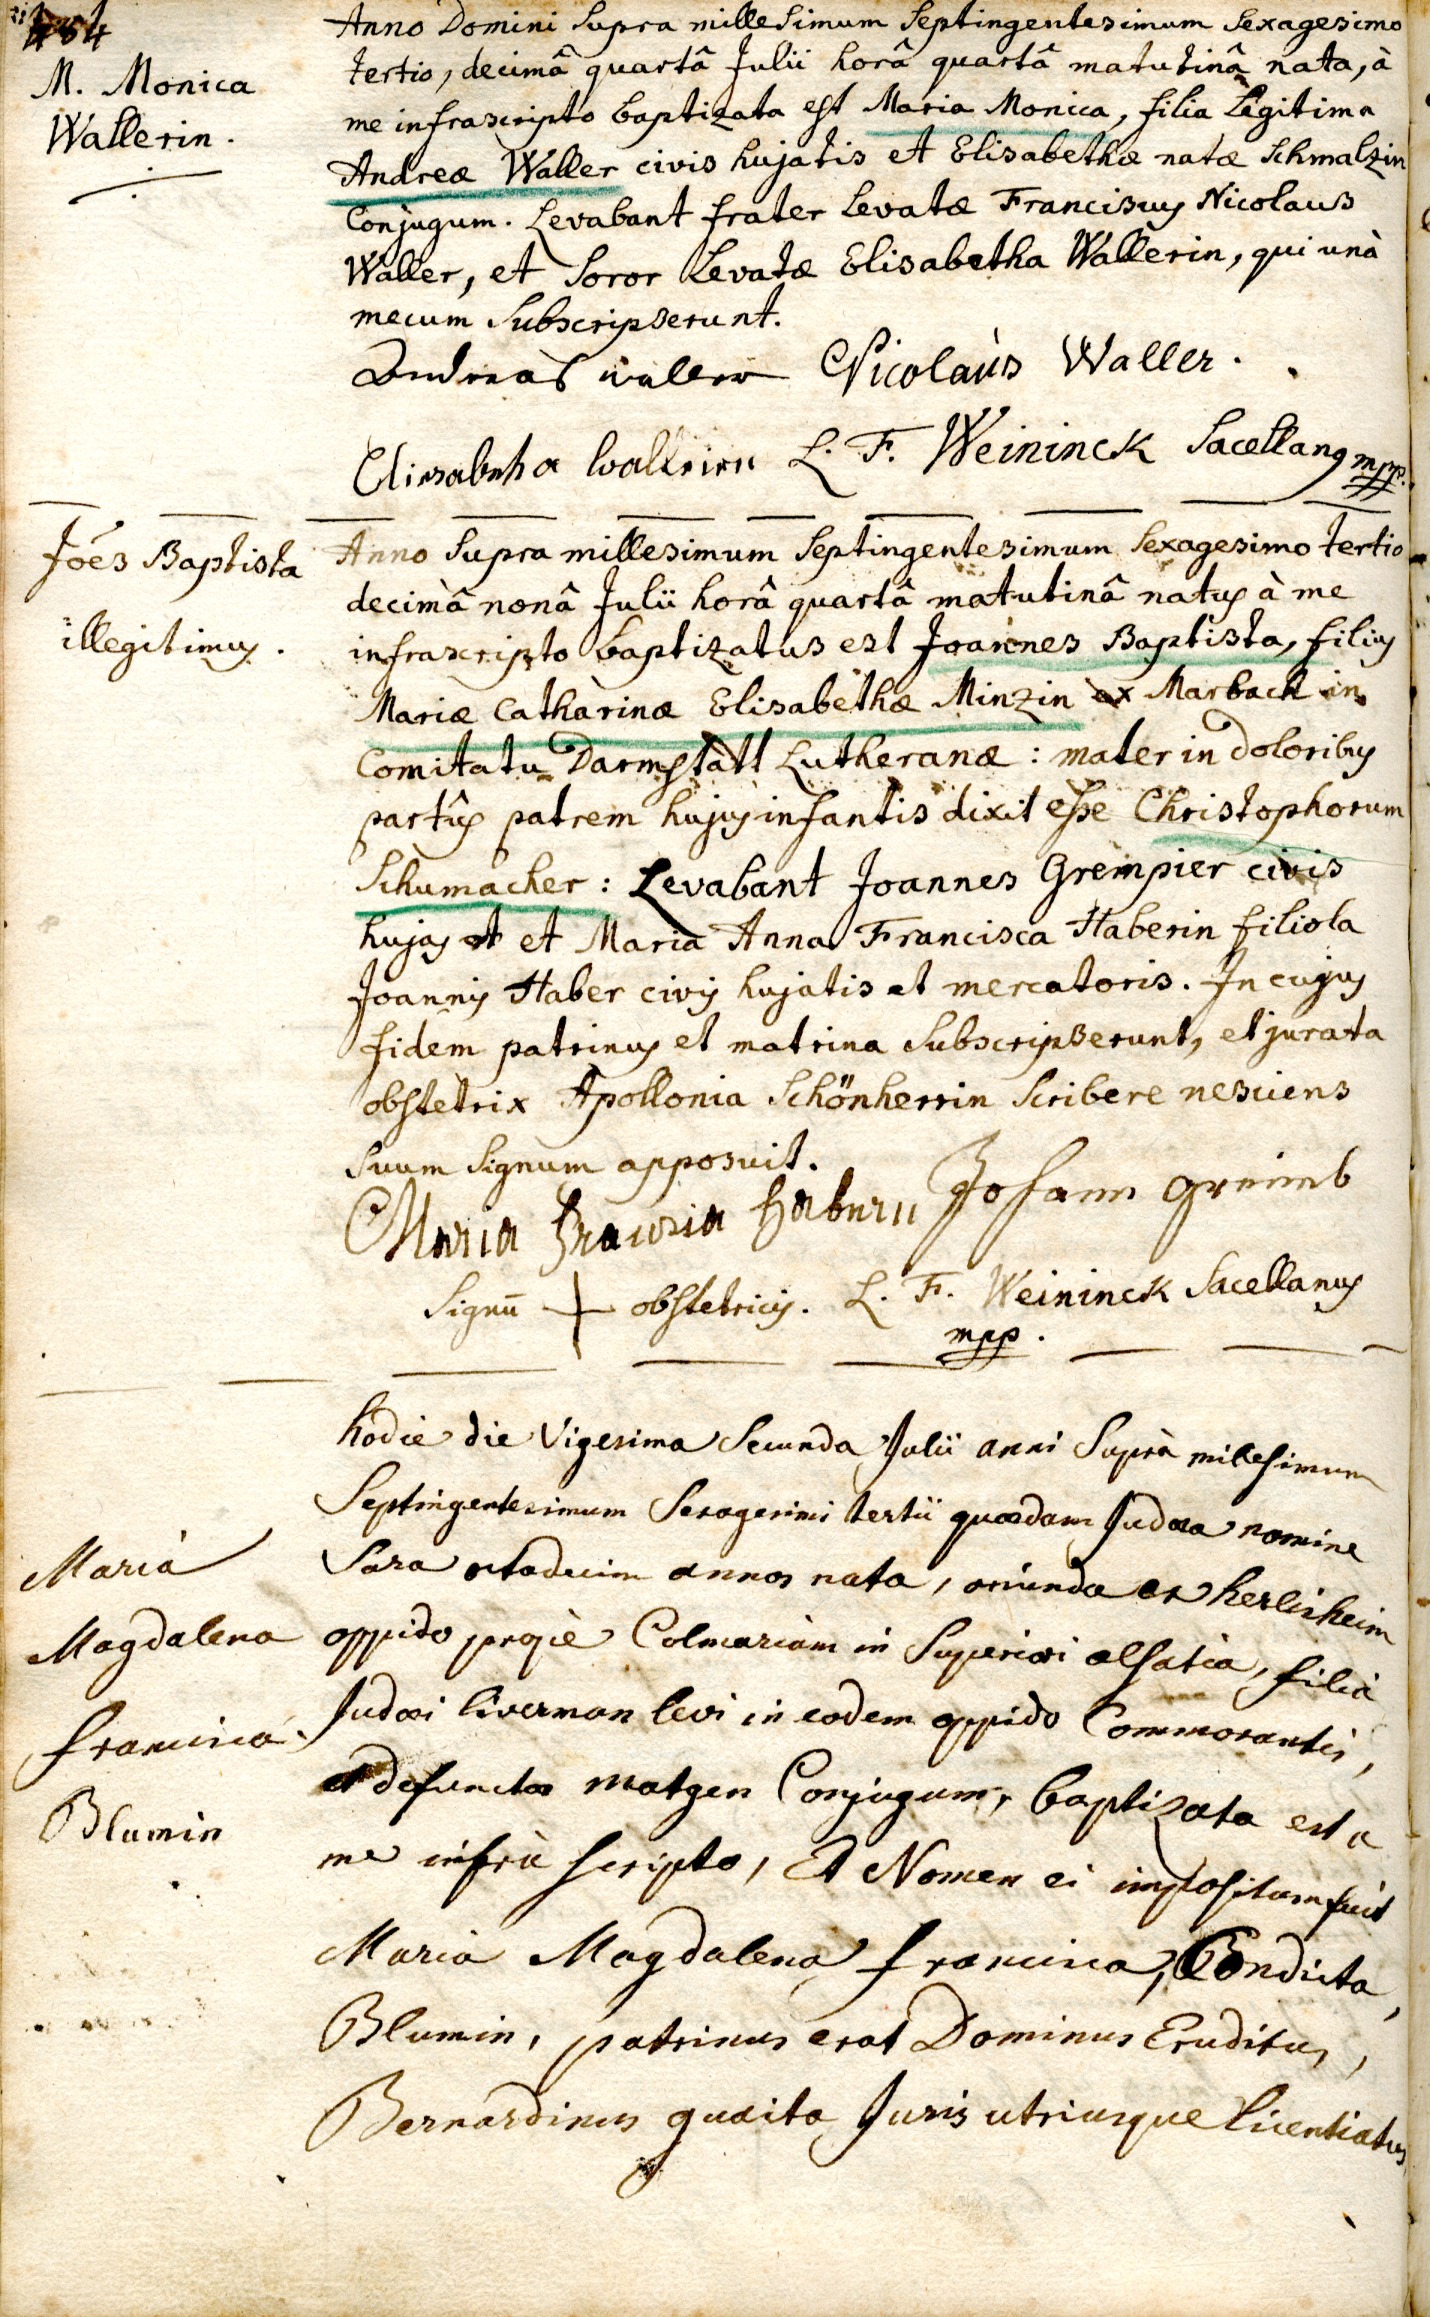 M. Monica
Wallerin.
Anno Domini supra millesimum septingentesimum sexagesimo
tertio, decimâ quartâ Julii horâ quartâ matutinâ nata, à
me infrascripto baptizata est Maria Monica, filia legitima
Andreæ Waller civis hujatis et Elisabethæ natæ Schmalzin
Conjugum. Levabant frater levatæ Franciscus Nicolaus
Waller, et soror levatæ Elisabetha Wallerin, qui unà
mecum subscripserunt.
Andreas waller Nicolaùs Waller.
Eliesabetha wallerin L. F. Weininck Sacellanus mpp.
Joês Baptista
illegitimus.
Anno supra millesimum septingentesimum sexagesimo tertio
decimâ nonâ Julii horâ quartâ matutinâ natus à me
infrascripto baptizatus est Joannes Baptista, filius
Mariæ Catharinæ Elisabethæ Minzin ex Marbach in
Comitatu Darmstatt Lutheranæ : mater in doloribus
partûs patrem hujus infantis dixit esse Christophorum
Schumacher : Levabant Joannes Grempier civis
hujas et Maria Anna Francisca Haberin filiola
Joannis Haber civis hujatis et mercatoris. In cujus
fidem patrinus et matrina subscripserunt, et jurata
obstetrix Apollonia Schönherrin scribere nesciens
suum signum apposuit.
Maria Haberin Johann
Signū + obstetricis. L. F. Weininck Sacellanus
mpp.
Maria
Magdalena
francisca
Blumin
hodie die Vigesima Secunda Julii anni Suprà millesimum
Septingentesimum Sexagesimi tertii quædam Judæa nomine
Sara octodecim annos nata, oriunda ex herlisheim
oppido propè Colmariam in Superiori alsatia, filia
Judæi liverman levi in eodem oppido Commorantis,
et defunctæ matgen Conjugum, baptizata est a
me infrà scripto, Et Nomen ei impositum fuit
Maria Magdalena francisca, Condicta,
Blumin, patrinus erat Dominus Eruditus,
Bernardinus guaita Juris utriusque licentiatus